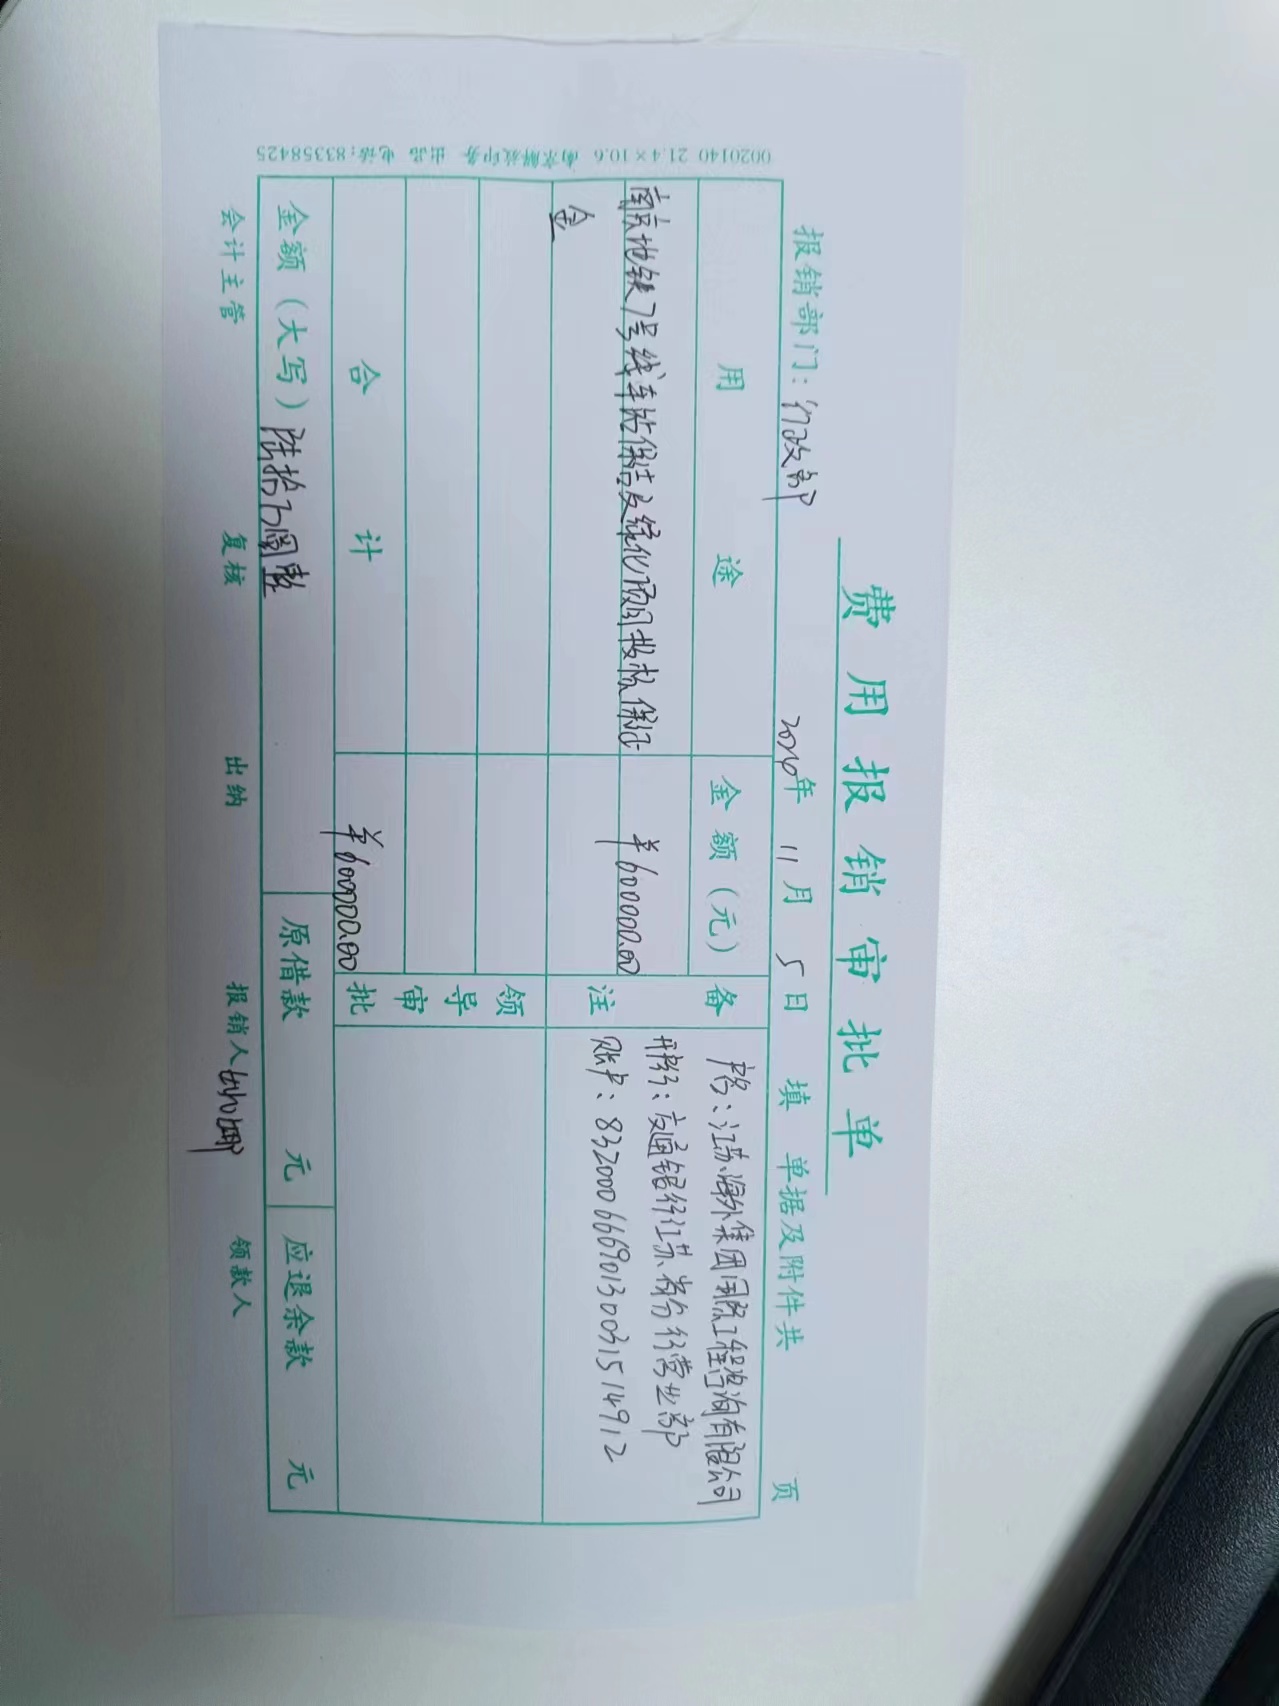 费用报销审批单
报销部门：行政部 2024年 11月 5日 填 单据及附件共 页
用途 金额（元） 备注
南京地铁7号线车站保洁及绿化项目投标保证 ¥600000.00
金
户名：江苏海外集团国际工程咨询有限公司
开户行：交通银行江苏省分行营业部
账户：320006669013003151492
领导审批
合计 ¥600000.00
金额（大写）陆拾万圆整 原借款 元 应退余款 元
会计主管 复核 出纳 报销人 领款人
0020140 21.4×10.6 南京解放印务 出品 电话：83358425